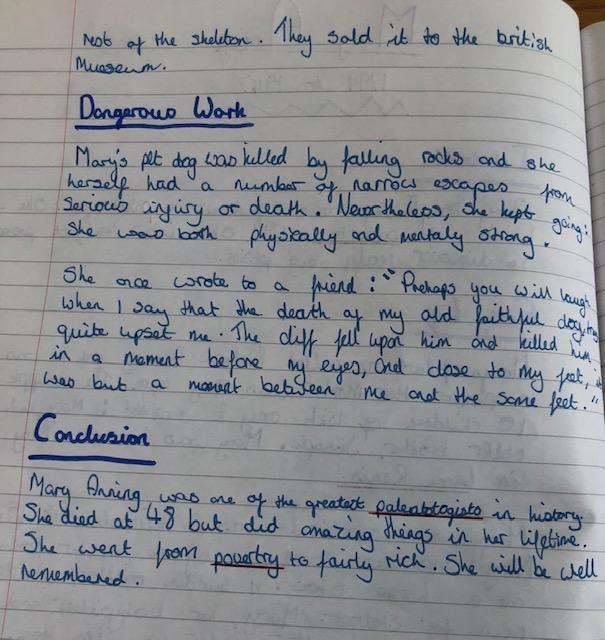 rest of the skeleton. They sold it to the british
Museum.
Dangerous Work
Mary's pet dog was killed by falling rocks and she
herself had a number of narrow escapes from
serious injury or death. Nevertheless, she kept going:
She was both physically and mentaly strong.
She once wrote to a friend: "Prehaps you will laugh
when I say that the death of my old faithful dog has
quite upset me. The cliff fell upon him and killed him
in a moment before my eyes, and close to my feet, it
was but a moment between me and the same feet."
Conclusion
Mary Anning was one of the greatest paleabtogists in history.
She died at 48 but did amazing things in her lifetime.
She went from povertry to fairly rich. She will be well
remembered.